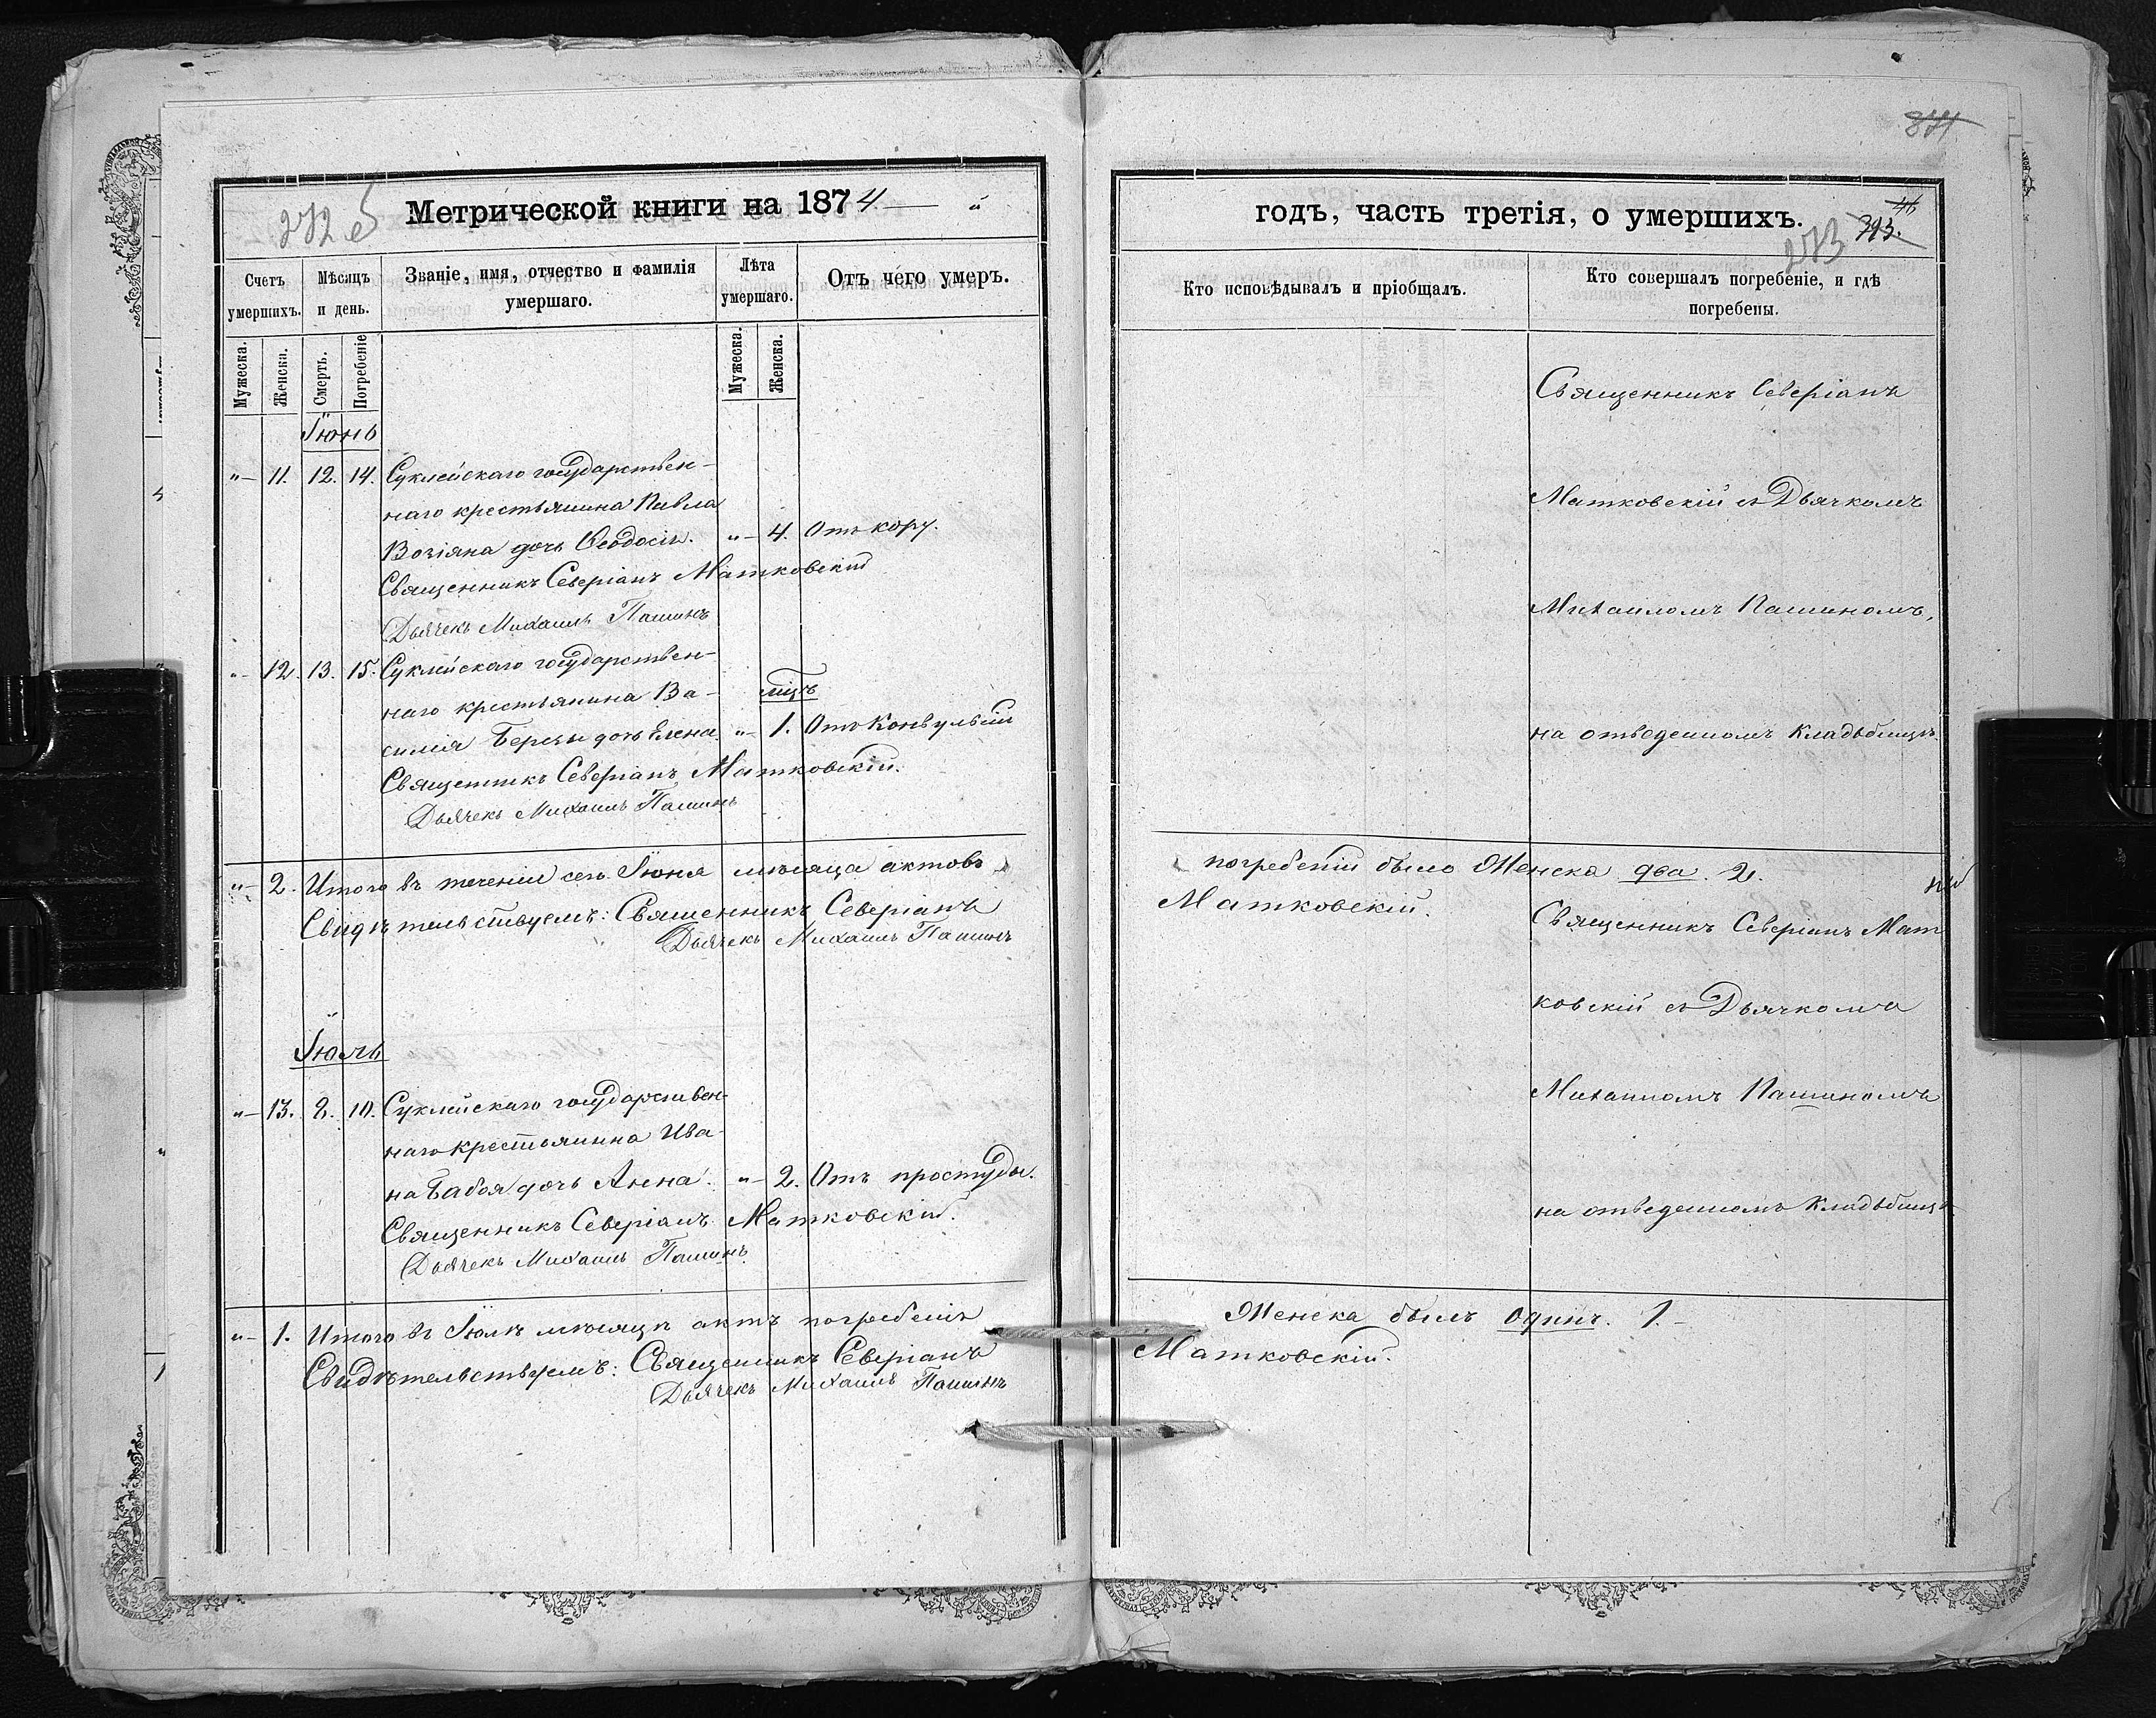 272 б
Метрической книги на 1874. — "
Счетъ умершихъ.
Мѣсяцъ и день.
Званіе, имя, отчество и фамилія умершаго.
Лѣта умершаго.
Отъ чего умеръ.
Мужеска.
Женска.
Смерть.
Погребеніе
Мужеска.
Женска.
Іюнь
"— 11. 12. 14. Суклейскаго государствен-
наго крестьянина Павла
Возіяна дочь Ѳеодосія. "— 4. Отъ кору.
Священникъ Северіанъ Матковскій
Дьячекъ Михаилъ Пашинъ
"— 12. 13. 15. Суклейскаго государствен-
наго крестьянина Ва- мѣцъ
силія Березы дочь Елена. "— 1. Отъ Конвульсіи
Священникъ Северіанъ Матковскій.
Дьячекъ Михаилъ Пашинъ
"— 2. Итого въ теченіи сего Іюня мѣсяца актовъ
Свидѣтельствуемъ: Священникъ Северіанъ
Дьячекъ Михаилъ Пашинъ
Іюль
"— 13. 8. 10. Суклейскаго государствен-
наго крестьянина Ива-
на Бабоя дочь Анна. "— 2. Отъ простуды.
Священникъ Северіанъ Матковскій.
Дьячекъ Михаилъ Пашинъ.
"— 1. Итого въ Іюлѣ мѣсяцѣ актъ погребенія
Свидѣтельствуемъ: Священникъ Северіанъ
Дьячекъ Михаилъ Пашинъ
годъ, часть третія, о умершихъ.
273
Кто исповѣдывалъ и пріобщалъ.
Кто совершалъ погребеніе, и гдѣ погребены.
Священникъ Северіанъ
Матковскій съ Дьячкомъ
Михаиломъ Пашиномъ,
на отведенномъ Кладбищѣ.
погребеній было Женска два. 2.
Матковскій.
Священникъ Северіанъ Мат
ковскій съ Дьячкомъ
Михаиломъ Пашиномъ
на отведенномъ Кладбищѣ
Женска былъ одинъ. 1.—
Матковскій.